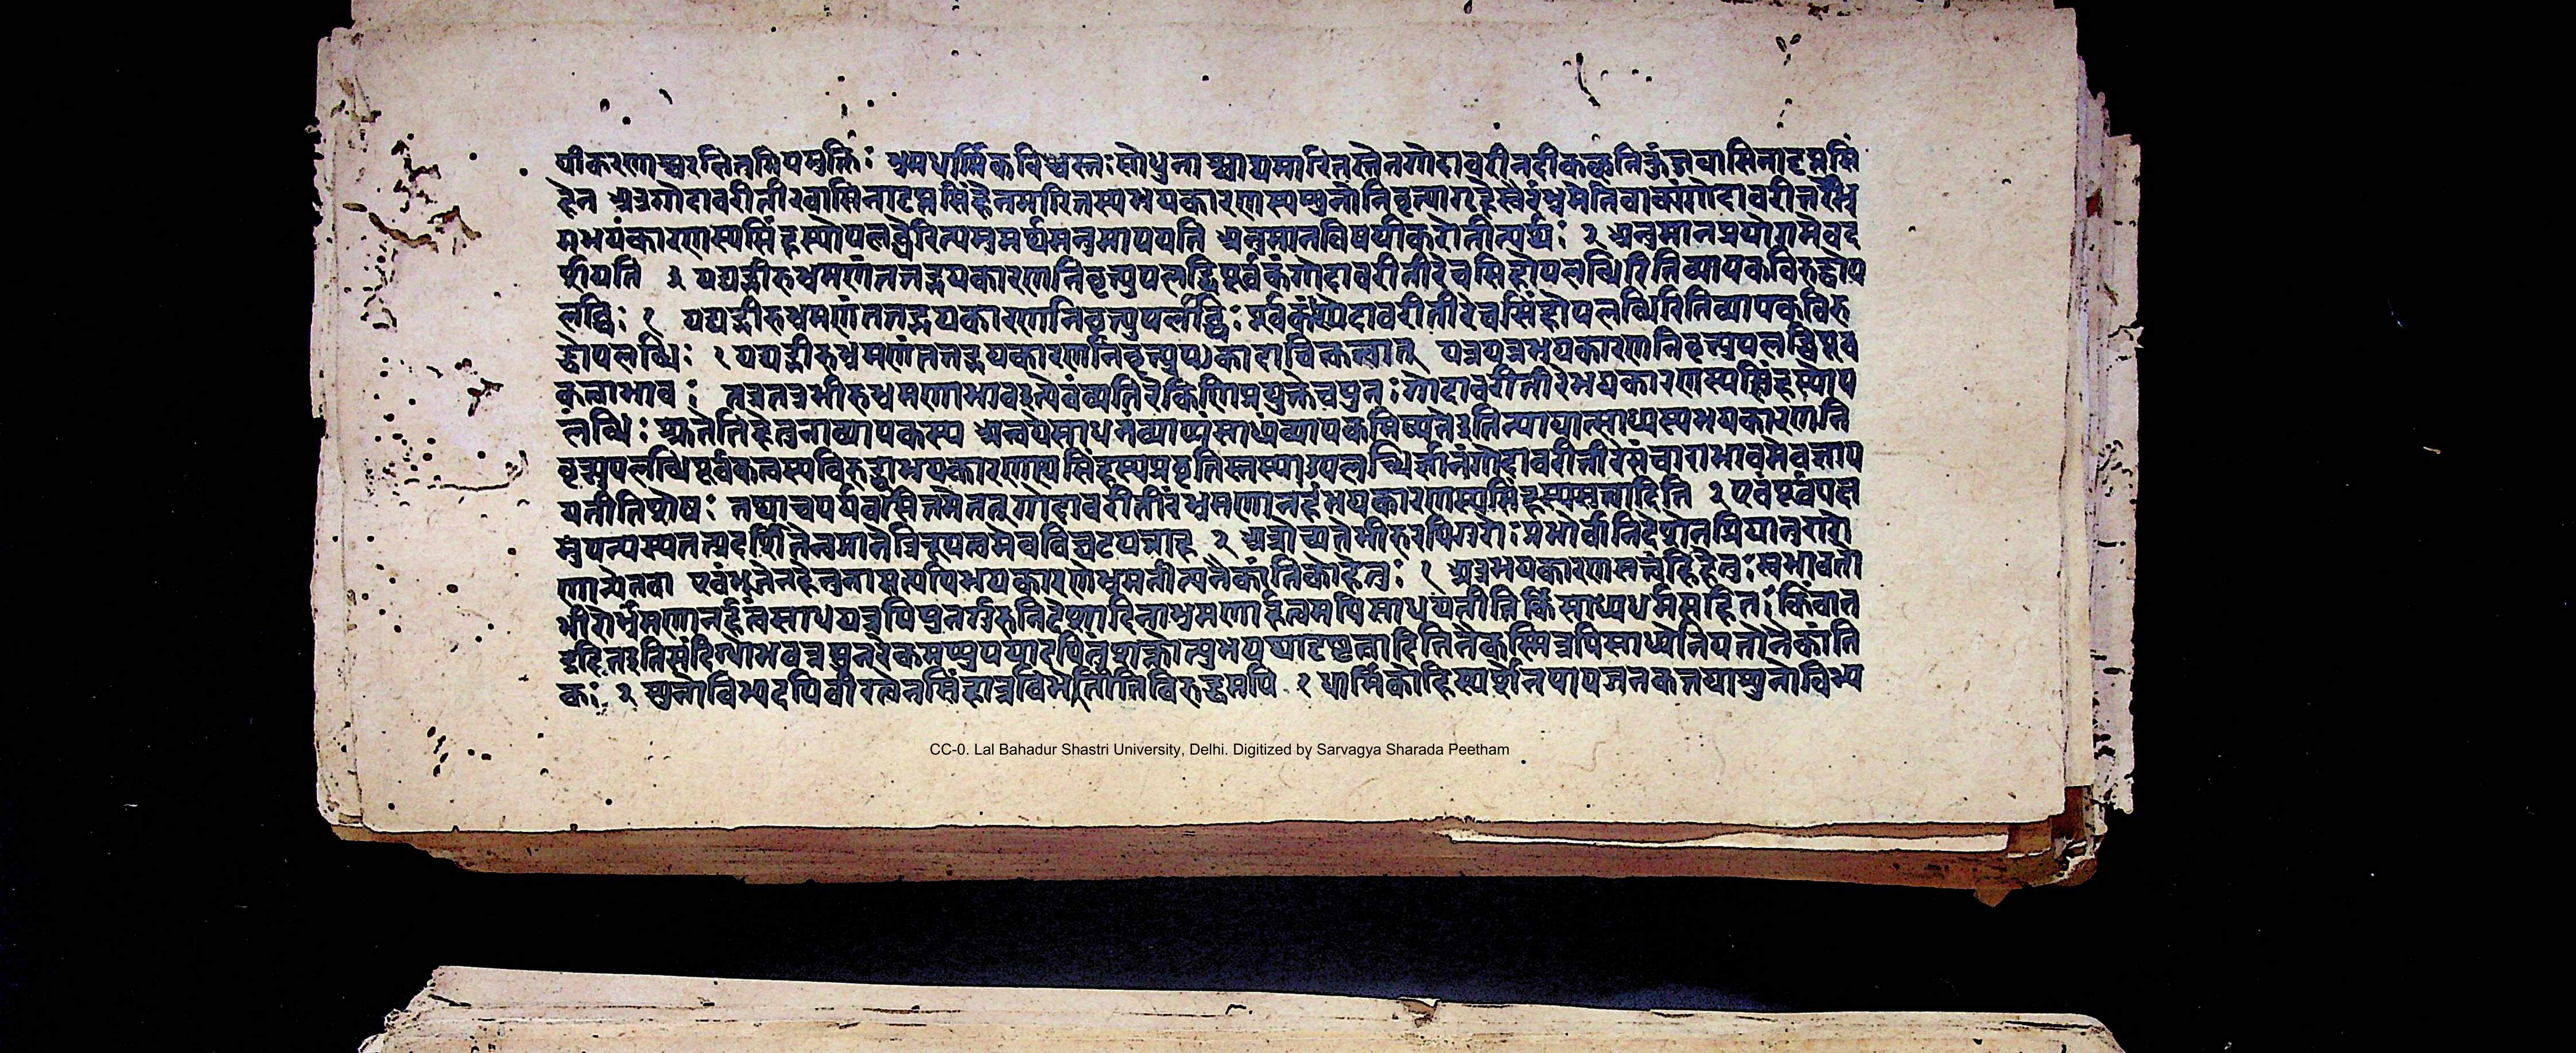 यीकरणाच्चरतितमियमुक्तिः भ्रमधार्मिकविश्वस्तः सोधुनाश्वाद्यमारितस्तेनगोदावरीनदीकच्छनिकुंजवासिनादृप्तसिं
हेन अत्रगोदावरीतीरवासिनादृप्तसिंहेनमारितस्यभयकारणस्यशुनोनिवृत्त्यागृहेस्वैरंभ्रमेतिवाक्यंगोदावरीतीरेभ्र
मभयंकारणस्यसिंहस्योपलब्धेरित्यमुमर्थमनुमापयति अनुमानविषयीकरोतीत्यर्थः २ अनुमानप्रयोगमेवद
र्शयति ३ यद्यद्भीरुभ्रमणंतत्तद्भयकारणनिवृत्त्युपलब्धिपूर्वकंगोदावरीतीरेचसिंहोपलब्धिरितिव्यापकविरुद्धोप
लब्धिः १ यद्यद्भीरुभ्रमणंतत्तद्भयकारणनिवृत्त्युपलब्धिः पूर्वकंगोदावरीतीरेचसिंहोपलब्धिरितिव्यापकविरु
द्धोपलब्धिः १ यद्यद्भीरुभ्रमणंतत्तद्भयकारणनिवृत्त्युप)कादाचित्कत्वात् यत्रयत्रभयकारणनिवृत्त्युपलब्धिपूर्व
कत्वाभावः तत्रतत्रभीरुभ्रमणाभावइत्येवंव्यतिरेकिणिप्रयुक्तेचपुनः गोदावरीतीरेभयकारणस्यसिंहस्योप
लब्धिः हेतुनाव्यापकस्य अन्वयेसाधनंव्याप्यंसाध्यंव्यापकमिष्यतेइतिन्यायात्साध्यस्यभयकारणनि
वृत्त्युपलब्धिपूर्वकत्वस्यविरुद्धाभयकारणस्यसिंहस्यप्रवृत्तिस्तस्याउपलब्धिर्ज्ञानंगोदावरीतीरसंचाराभावमेवज्ञाप
यतीतिशेषः तथाचपर्यवसितमेतत् गोदावरीतीरंभ्रमणानर्हंभयकारणस्यसिंहस्यसत्त्वादिति २ एवंपूर्वपक्ष
मुपन्यस्यतत्प्रदर्शितेनुमानेत्रिरूपत्वमेवविघटयन्नाह २ अत्रोच्यतेभीरुरपिगुरोः प्रभोर्वानिदेशेनप्रियानुरागे
णान्येनवा एवंभूतेनहेतुनासत्यपिभयकारणेभ्रमतीत्यनैकांतिकोहेतुः १ अत्रभयकारणसत्त्वंहिहेतुः स्वभावतो
भीरोर्भ्रमणानर्हत्वंसाधयन्नपिपुनर्गुरुनिदेशादिनाभ्रमणार्हत्वमपिसाधयतीतिकिंसाध्यधर्मसहितः किंवात
द्रहितइतिसंदिग्धोभवन्नपुनरेकमप्युपपादयितुंशक्तोत्युभयथादृष्टत्वादितिनैकस्मिन्नपिसाध्येनियतोनैकांति
कः २ शुनोविभ्यदपिवीरत्वेनसिंहान्नविभेतीतिविरुद्धमपि १ धार्मिकोहिस्पर्शेनपापजनकतयाशुनोविभ्य
CC-0. Lal Bahadur Shastri University, Delhi. Digitized by Sarvagya Sharada Peetham